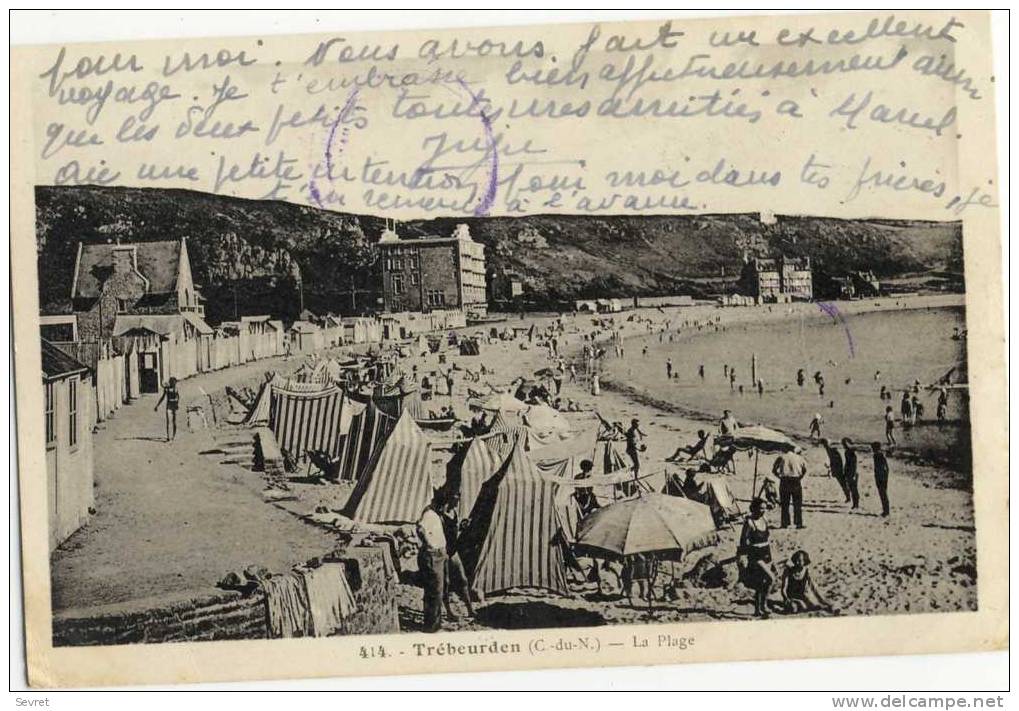 pour moi. Nous avons fait un excellent
voyage. Je t'embrasse bien affectueusement ainsi
que les deux petits toutes mes amitiés à Marcel.
Aie une petite intention pour moi dans tes prières, je
t'en remercie à l'avance.
414. - Trébeurden (C.-du-N.) — La Plage
Sevret
http://www.delcampe.net